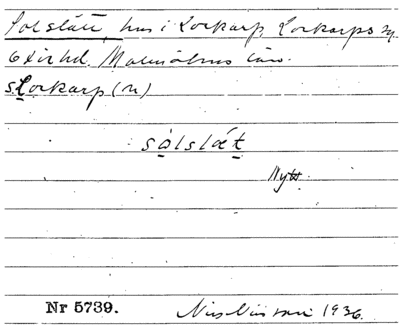 Solslätt, hus i Lockarp, Lockarps sn
Oxie hd. Malmöhus län.
sLockarp (n)
sòlslæt
Nytt.
Nr 5739.
Nils Nilsson 1936.